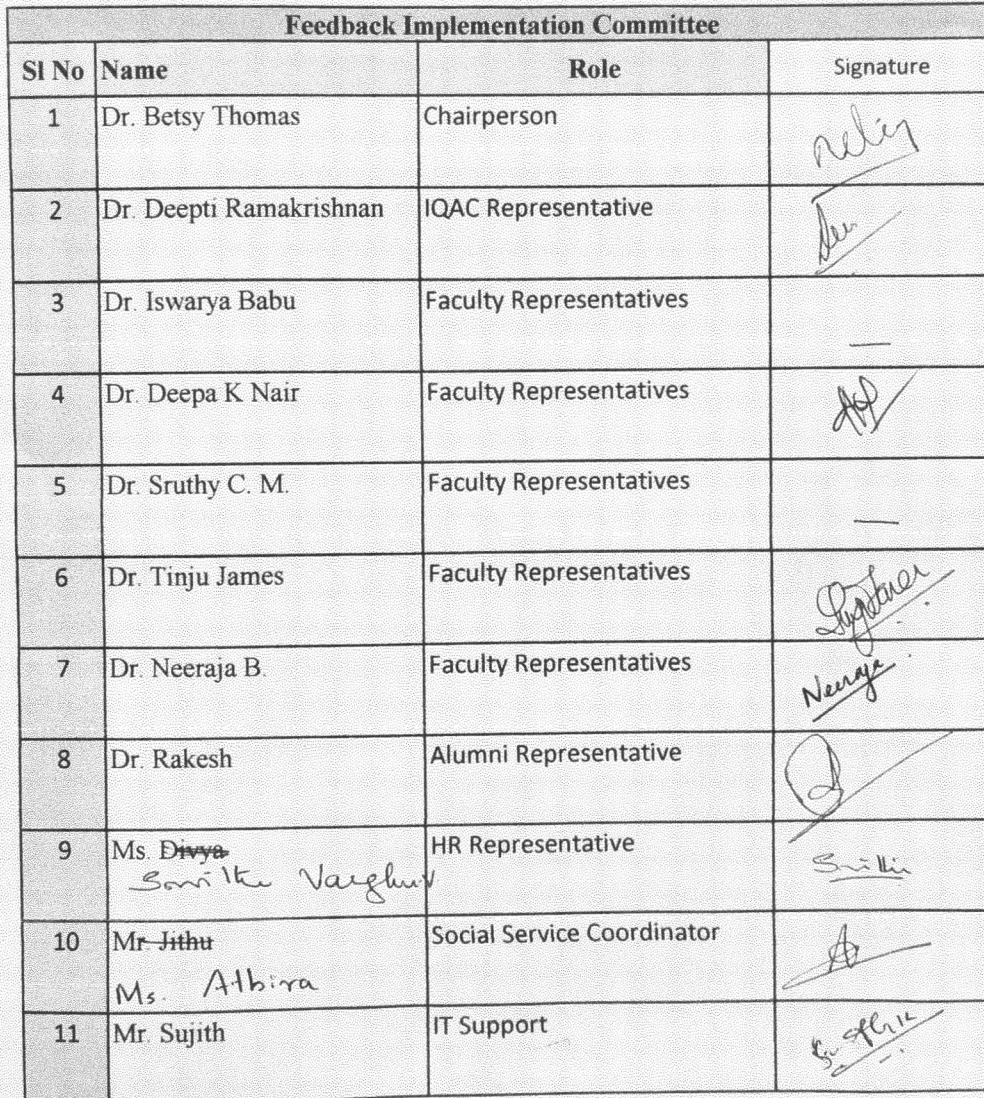 Feedback Implementation Committee
Sl No Name Role Signature
1 Dr. Betsy Thomas Chairperson
2 Dr. Deepti Ramakrishnan IQAC Representative
3 Dr. Iswarya Babu Faculty Representatives —
4 Dr. Deepa K Nair Faculty Representatives
5 Dr. Sruthy C. M. Faculty Representatives —
6 Dr. Tinju James Faculty Representatives
7 Dr. Neeraja B. Faculty Representatives Neeraja
8 Dr. Rakesh Alumni Representative
9 Ms. Divya HR Representative
10 Mr. Jithu Social Service Coordinator
Ms. Athira
11 Mr. Sujith IT Support